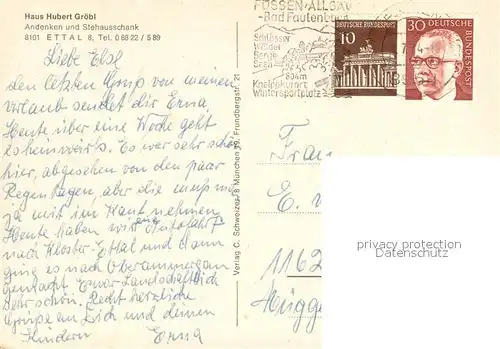 Haus Hubert Gröbl
Andenken und Stehausschank
8101 ETTAL 8, Tel. 0 88 22 / 5 89
FÜSSEN-ALLGÄU
-Bad Faulenbach
Schlösser
Wälder
Berge
Seen
804m
Kneippkurort
Wintersportplatz
DEUTSCHE BUNDESPOST
10
30
DEUTSCHE
BUNDESPOST
Liebe Else
den letzten Gruß von meinem
Urlaub sendet dir Erna.
Heute über eine Woche geht
es heimwärts. Es war sehr schön
hier, abgesehen von den paar
Regentagen, aber die muß man
ja mit in Kauf nehmen
Heute haben wir eine Autofahrt
nach Kloster-Ettal und dann
ging es nach Oberammergau
gemacht. Landschaftlich
sehr schön. Recht herzliche
Grüße an Dich und deinen
Kindern Erna
Verlag C. Schweizer, 8 München 19, Frundbergstr. 21
Frau
E.
1162
Mügge
privacy protection
VDMedien24.de